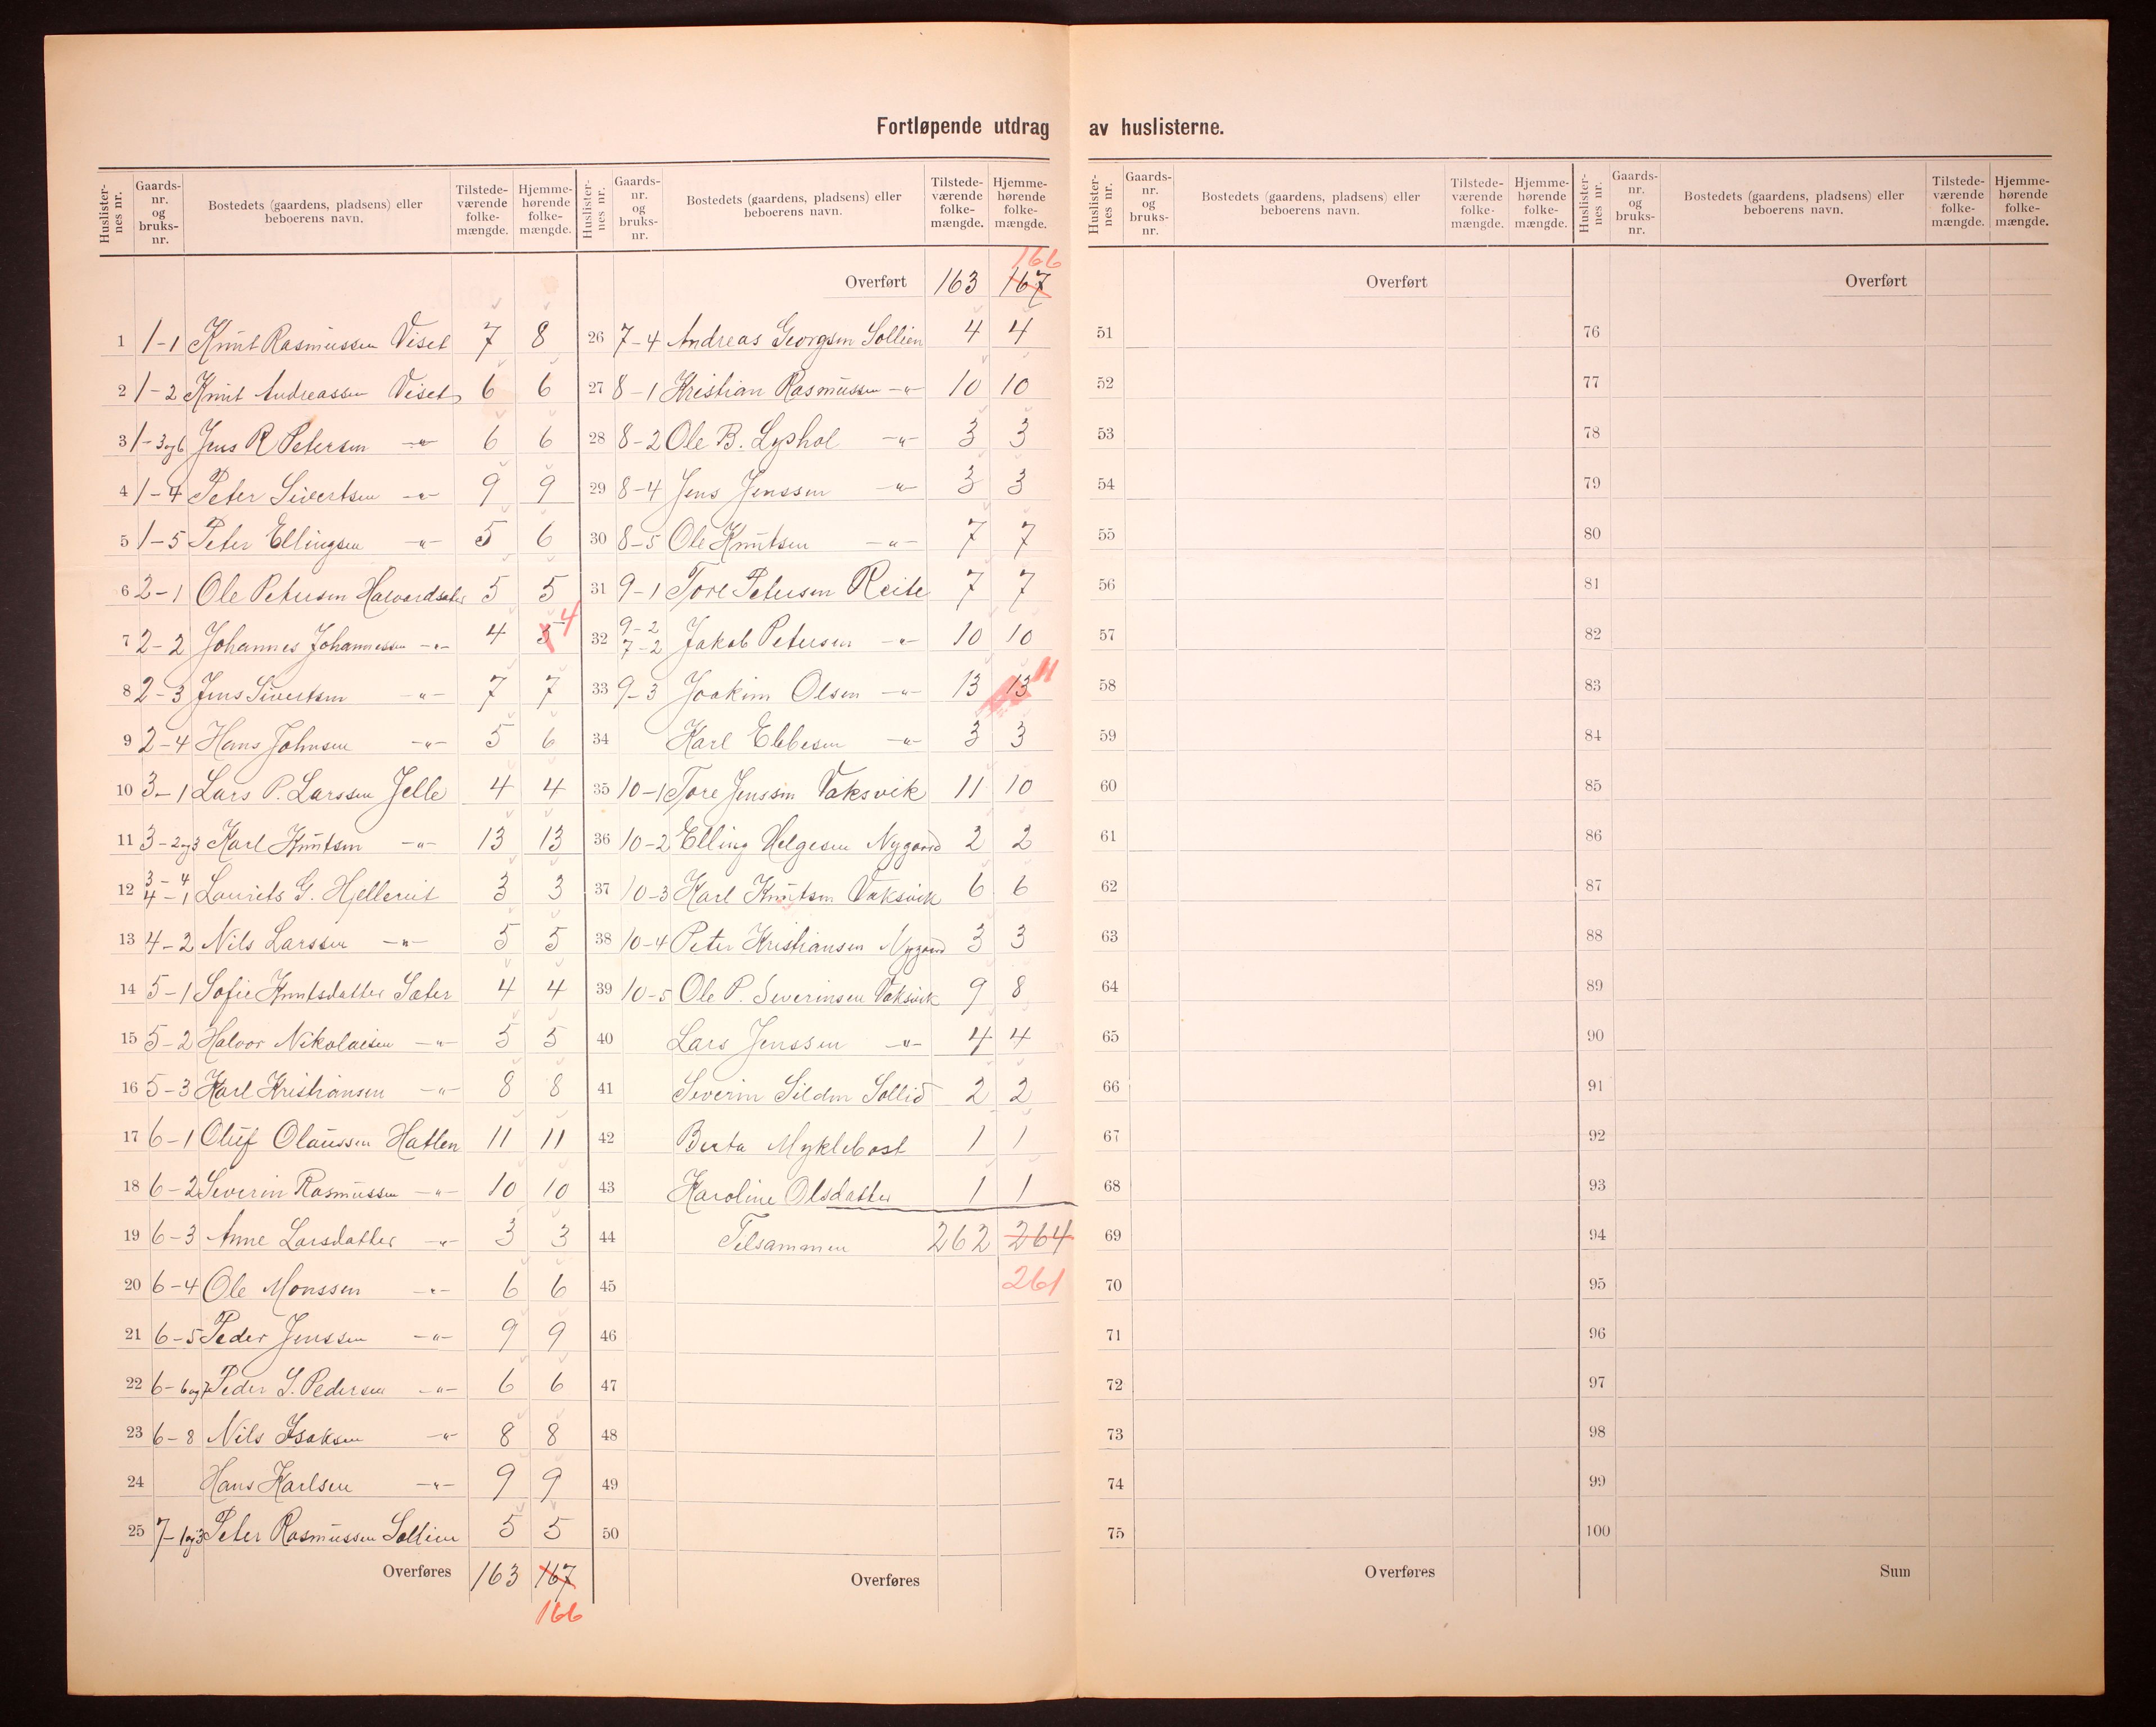 Fortløpende utdrag av huslisterne.
Huslisternes nr. Gaards-nr. og bruks-nr. Bostedets (gaardens, pladsens) eller beboerens navn. Tilstedeværende folkemængde. Hjemmehørende folkemængde.
1 1-1 Knut Rasmussen Viset 7 8
2 1-2 Knut Andreassen Viset 6 6
3 1-3og6 Jens R Petersen -"- 6 6
4 1-4 Peter Sivertsen -"- 9 9
5 1-5 Peter Ellingsen -"- 5 6
6 2-1 Ole Petersen Havardsæter 5 5
7 2-2 Johannes Johannessen -"- 4 5 4
8 2-3 Jens Sivertsen -"- 7 7
9 2-4 Hans Johnsen -"- 5 6
10 3-1 Lars P. Larssen Jelle 4 4
11 3-2og3 Karl Knutsen -"- 13 13
12 3-4 4-1 Laurits G. Hjellervit 3 3
13 4-2 Nils Larssen -"- 5 5
14 5-1 Sofie Knutsdatter Sæter 4 4
15 5-2 Halvor Nikolaisen -"- 5 5
16 5-3 Karl Kristiansen -"- 8 8
17 6-1 Oluf Olaussen Hatlen 11 11
18 6-2 Severin Rasmussen -"- 10 10
19 6-3 Anne Larsdatter -"- 3 3
20 6-4 Ole Monssen -"- 6 6
21 6-5 Peder Jenssen -"- 9 9
22 6-6og7 Peder S. Pedersen -"- 6 6
23 6-8 Nils Isaksen -"- 8 8
24 Hans Karlsen -"- 9 9
25 7-1og3 Peter Rasmussen Sollien 5 5
Overføres 163 167
166
Huslisternes nr. Gaards-nr. og bruks-nr. Bostedets (gaardens, pladsens) eller beboerens navn. Tilstedeværende folkemængde. Hjemmehørende folkemængde.
166
Overført 163 167
26 7-4 Andreas Georgsen Sollien 4 4
27 8-1 Kristian Rasmussen -"- 10 10
28 8-2 Ole B. Lyshol -"- 3 3
29 8-4 Jens Jenssen -"- 3 3
30 8-5 Ole Knutsen -"- 7 7
31 9-1 Tore Petersen Reite 7 7
32 9-2 7-2 Jakob Petersen -"- 10 10
33 9-3 Joakim Olsen -"- 13 13 11
34 Karl Ebbesen -"- 3 3
35 10-1 Tore Jenssen Vaksvik 11 10
36 10-2 Elling Helgesen Nygaard 2 2
37 10-3 Karl Knutsen Vaksvik 6 6
38 10-4 Peter Kristiansen Nygaard 3 3
39 10-5 Ole P. Severinsen Vaksvik 9 8
40 Lars Jenssen -"- 4 4
41 Severin Sildm Sollid 2 2
42 Berta Myklebost 1 1
43 Karoline Olsdatter 1 1
44 Tilsammen 262 264
45 261
46
47
48
49
50
Overføres
Huslisternes nr. Gaards-nr. og bruks-nr. Bostedets (gaardens, pladsens) eller beboerens navn. Tilstedeværende folkemængde. Hjemmehørende folkemængde.
Overført
51
52
53
54
55
56
57
58
59
60
61
62
63
64
65
66
67
68
69
70
71
72
73
74
75
Overføres
Huslisternes nr. Gaards-nr. og bruks-nr. Bostedets (gaardens, pladsens) eller beboerens navn. Tilstedeværende folkemængde. Hjemmehørende folkemængde.
Overført
76
77
78
79
80
81
82
83
84
85
86
87
88
89
90
91
92
93
94
95
96
97
98
99
100
Sum